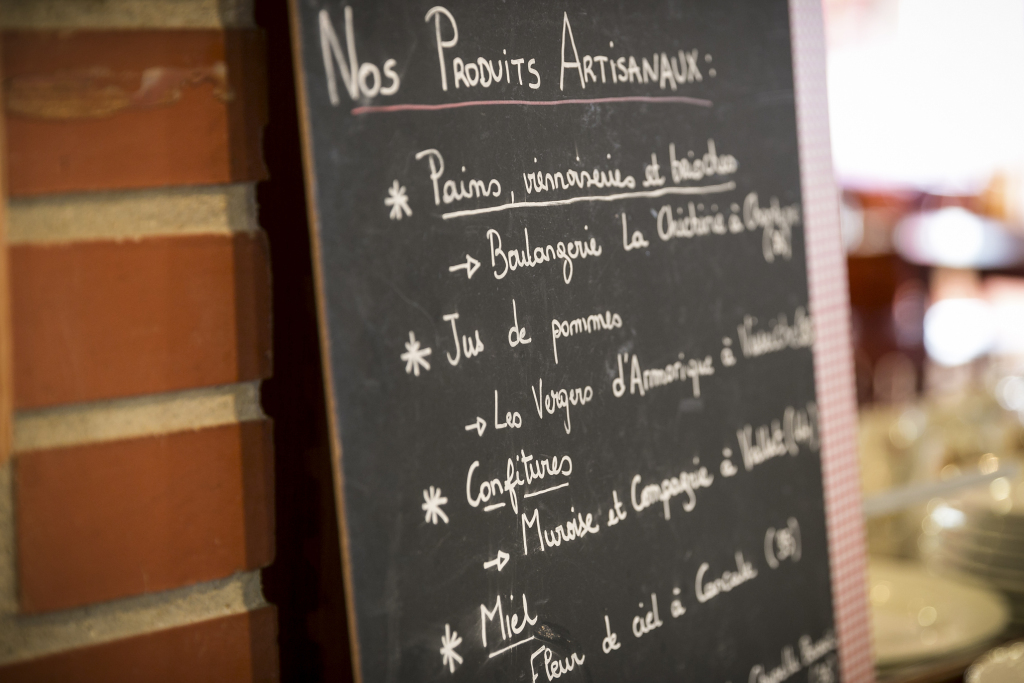 Nos Produits Artisanaux :
* Pains, viennoiseries et brioches
→ Boulangerie La Chietterie à
* Jus de pommes
→ Les Vergers d'Armorique à
* Confitures
→ Muroise et Compagnie à Vallet (44)
* Miel
Fleur de ciel à Cancale (35)